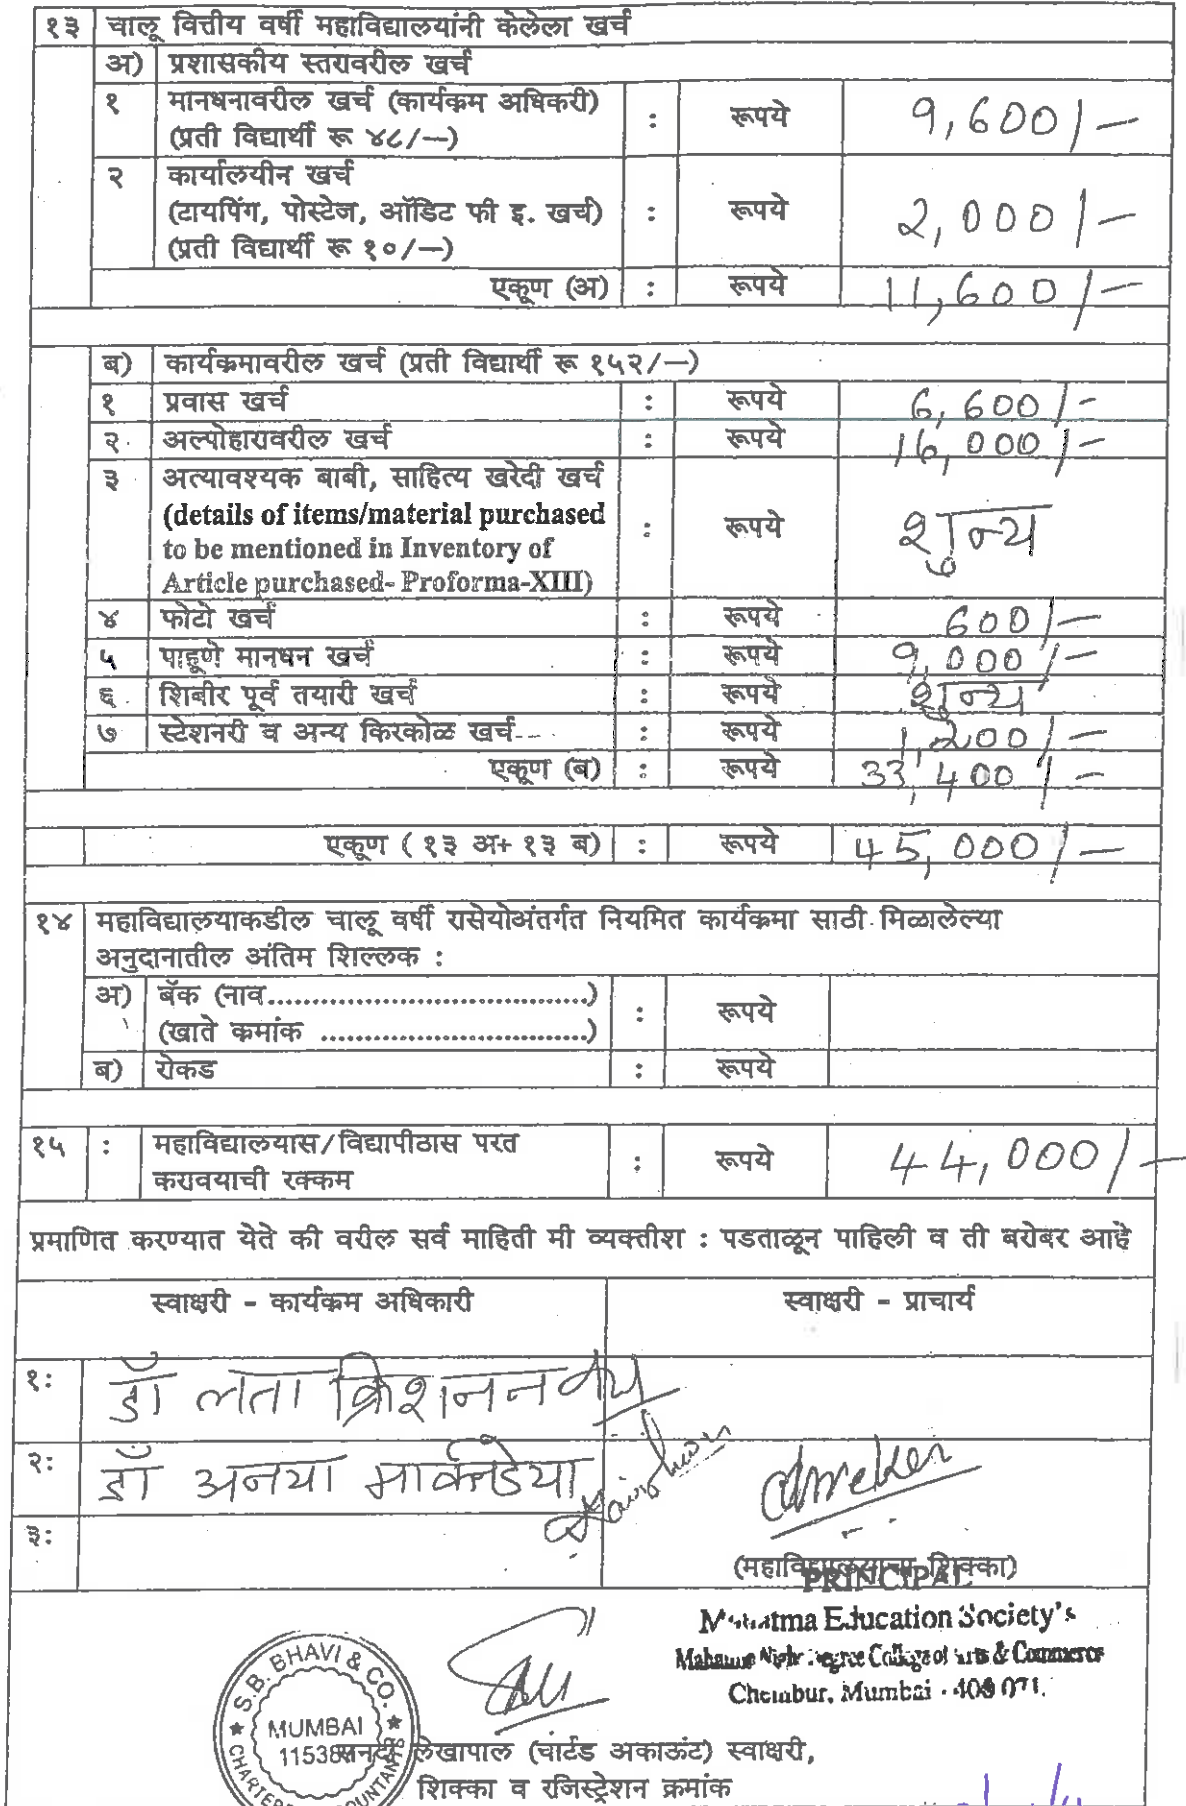 १३ चालू वित्तीय वर्षी महाविद्यालयांनी केलेला खर्च
अ) प्रशासकीय स्तरावरील खर्च
१ मानधनावरील खर्च (कार्यक्रम अधिकरी) : रूपये 9,600/-
(प्रती विद्यार्थी रू ४८/—)
२ कार्यालयीन खर्च
(टायपिंग, पोस्टेज, ऑडिट फी इ. खर्च) : रूपये 2,000/-
(प्रती विद्यार्थी रू १०/—)
एकूण (अ) : रूपये 11,600/-
ब) कार्यक्रमावरील खर्च (प्रती विद्यार्थी रू १५२/—)
१ प्रवास खर्च : रूपये 6,600/-
२ अल्पोहारावरील खर्च : रूपये 16,000/-
३ अत्यावश्यक बाबी, साहित्य खरेदी खर्च
(details of items/material purchased : रूपये शुन्य
to be mentioned in Inventory of
Article purchased- Proforma-XIII)
४ फोटो खर्च : रूपये 600/-
५ पाहूणे मानधन खर्च : रूपये 9,000/-
६ शिबीर पूर्व तयारी खर्च : रूपये शुन्य
७ स्टेशनरी व अन्य किरकोळ खर्च : रूपये 1,200/-
एकूण (ब) : रूपये 33,400/-
एकूण ( १३ अ+ १३ ब) : रूपये 45,000/-
१४ महाविद्यालयाकडील चालू वर्षी रासेयोअंतर्गत नियमित कार्यक्रमा साठी मिळालेल्या
अनुदानातील अंतिम शिल्लक :
अ) बॅक (नाव....................................) : रूपये
(खाते क्रमांक ..............................)
ब) रोकड : रूपये
१५ : महाविद्यालयास/विद्यापीठास परत : रूपये 44,000/-
करावयाची रक्कम
प्रमाणित करण्यात येते की वरील सर्व माहिती मी व्यक्तीश : पडताळून पाहिली व ती बरोबर आहे
स्वाक्षरी - कार्यक्रम अधिकारी स्वाक्षरी - प्राचार्य
१: डॉ लता क्रिशनन
२: डॉ अनया मार्कन्डेया
३:
(महाविद्यालयाचा शिक्का)
PRINCIPAL
Mahatma Education Society's
Mahatma Night Degree College of Arts & Commerce
Chembur, Mumbai - 400 071.
S.B. BHAVI & CO.
MUMBAI
CHARTERED ACCOUNTANTS
सनदी लेखापाल (चार्टड अकाऊंट) स्वाक्षरी,
शिक्का व रजिस्ट्रेशन क्रमांक